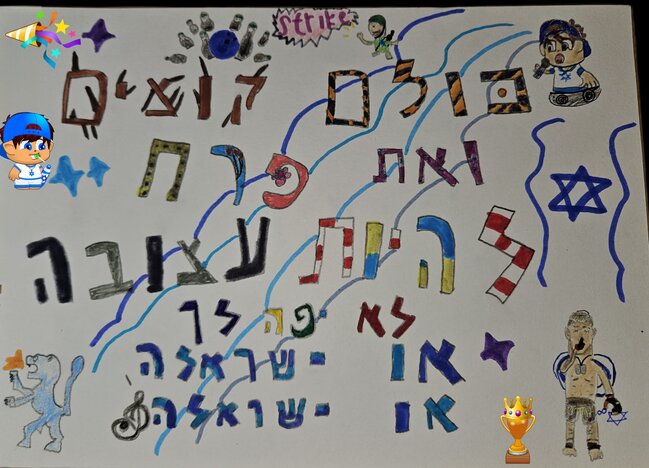 strike
כולם קוצים
ואת פרח
להיות עצובה
לא יפה לך
או ישראלה
או ישראלה